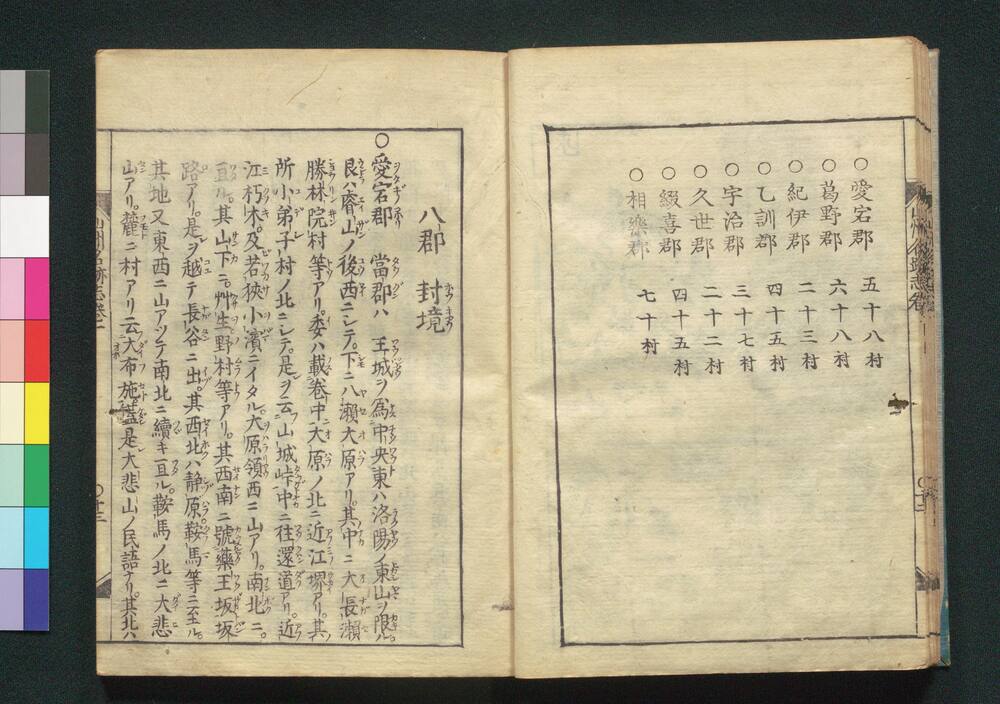 ○愛宕郡 五十八村
○葛野郡 六十八村
○紀伊郡 二十三村
○乙訓郡 四十五村
○宇治郡 三十七村
○久世郡 二十二村
○綴喜郡 四十五村
○相樂郡 七十村
八郡 封境
○愛宕郡 當郡ハ 王城ヲ爲中央東ハ洛陽ノ東山ヲ限ル
艮ハ睿山ノ後西ニシテ。下ニ八瀬大原アリ。其中ニ大長瀬
勝林院村等アリ。委ハ載卷中大原ノ北ニ近江堺アリ。其
所小弟子村ノ北ニシテ。是ヲ云山城峠中ニ往還道アリ。近
江朽木。及若狹小濱ニイタル。大原領西ニ山アリ。南北ニ。
亘ル。其山下ニ。艸生野村等アリ。其西南ニ號藥王坂坂
路アリ。是ヲ越テ長谷ニ出。其西北ハ静原鞍馬等ニ至ル。
其地又東西ニ山アツテ南北ニ續キ亘ル。鞍馬ノ北ニ大悲
山アリ。麓ニ村アリ云大布施蓋是大悲山ノ民語ナリ。其北ハ
山州名跡志卷一
○十三